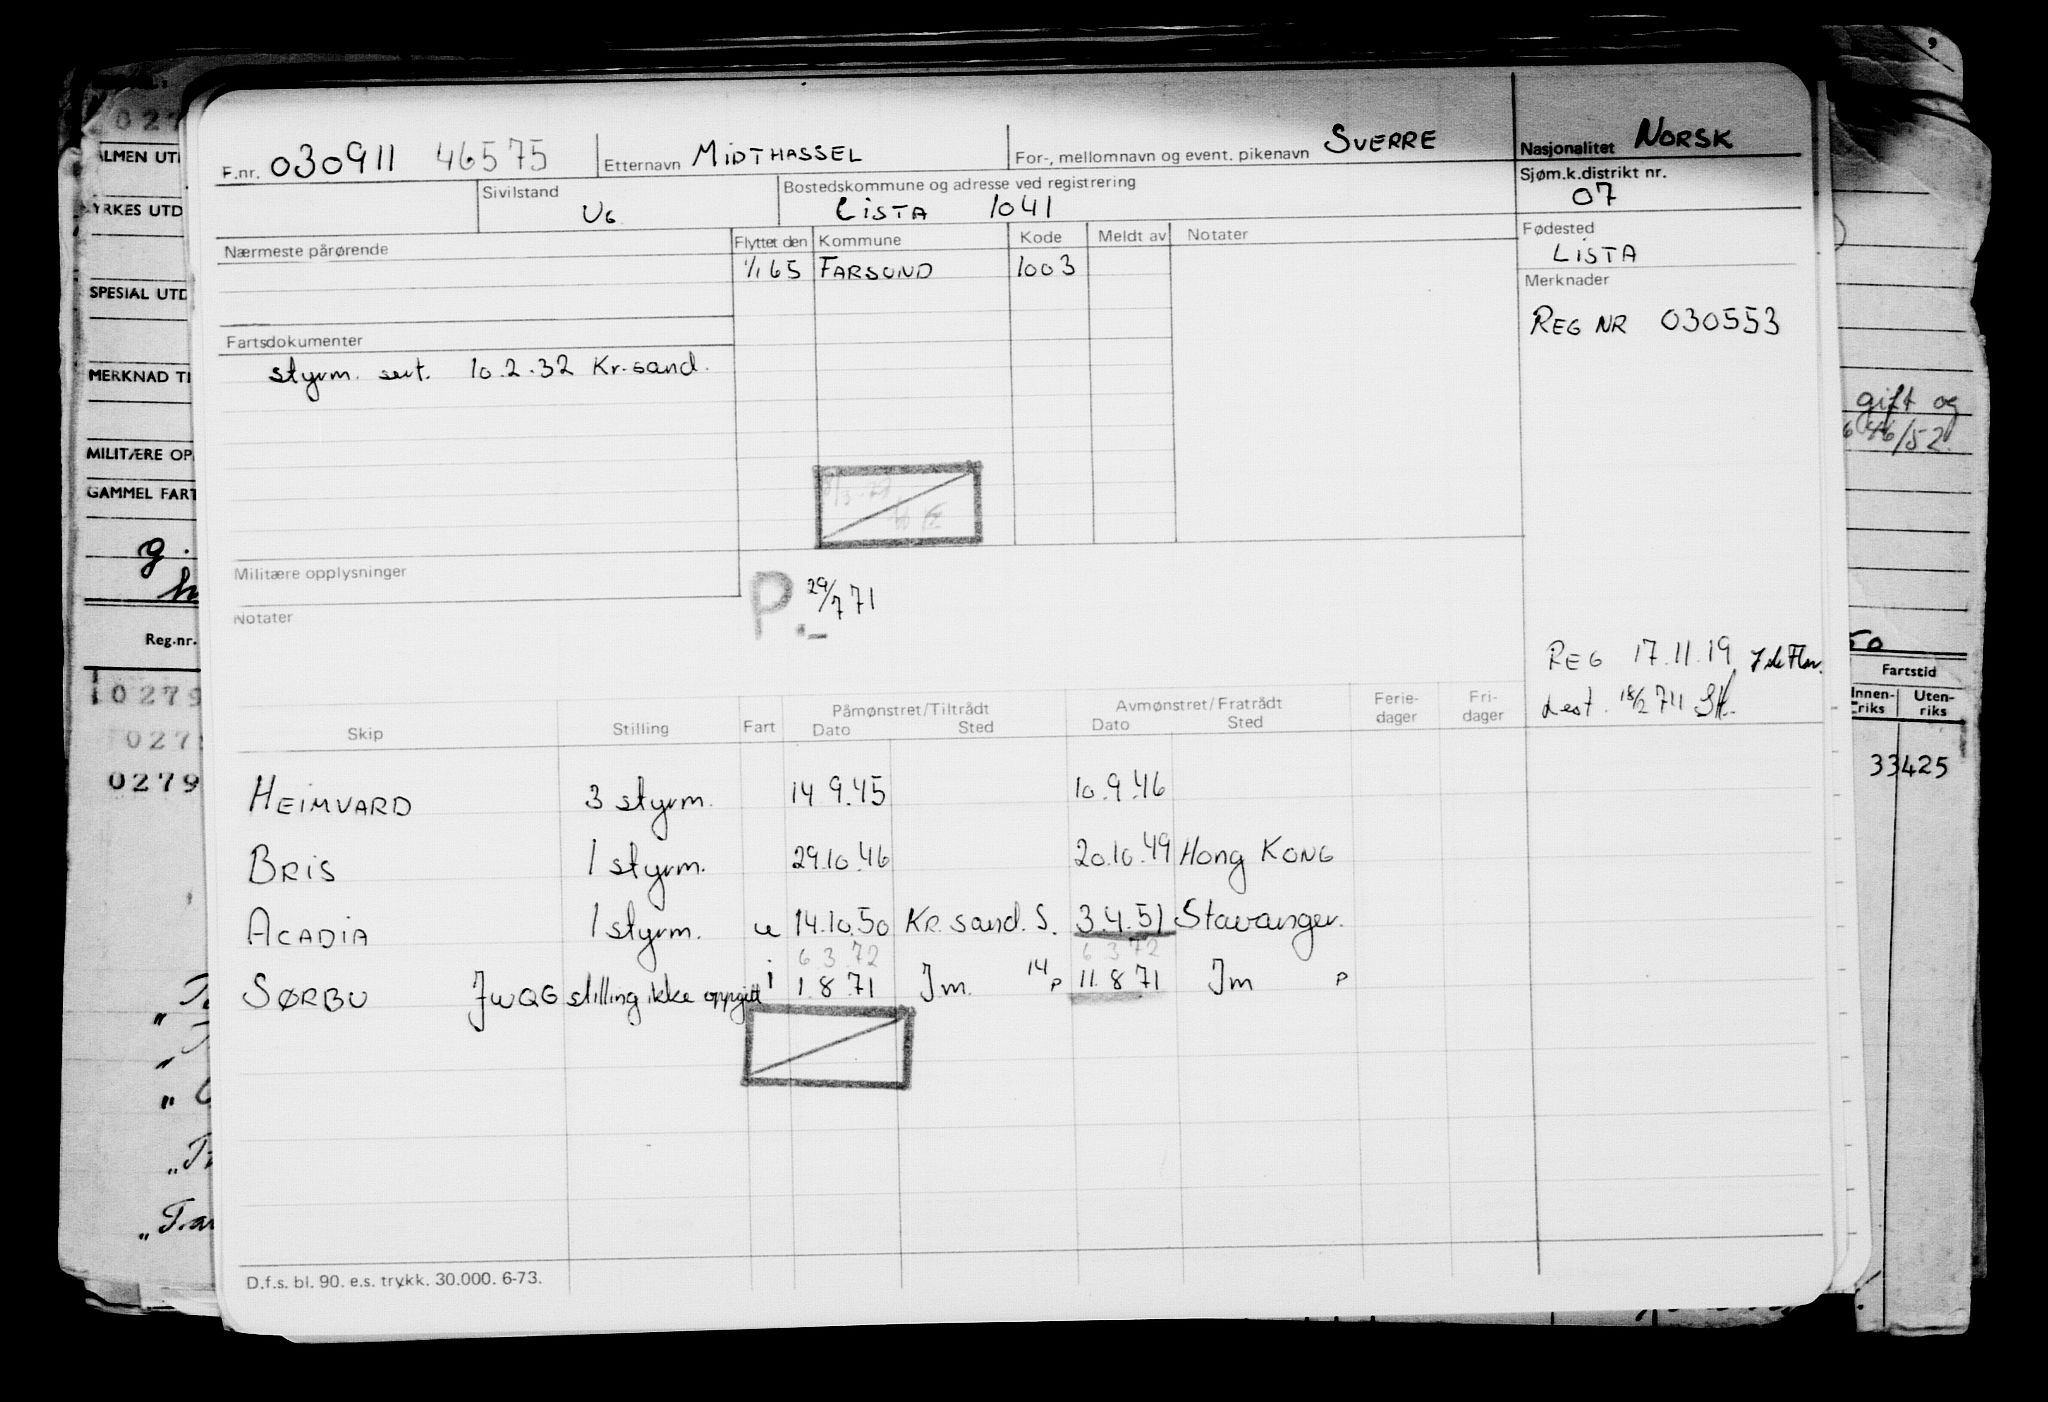 F.nr. 030911 46575 Etternavn MIDTHASSEL For-, mellomnavn og event. pikenavn SVERRE Nasjonalitet NORSK
Sivilstand UG Bostedskommune og adresse ved registrering LISTA 1041 Sjøm.k.distrikt nr. 07
Nærmeste pårørende Flyttet den Kommune Kode Meldt av Notater Fødested LISTA
1/1 65 FARSUND 1003
Merknader
REG NR 030553
Fartsdokumenter
styrm. sert. 10.2.32 Kr.sand.
Militære opplysninger
P. 29/7 71
Notater
REG 17.11.19
18/2 74
Skip Stilling Fart Påmønstret/Tiltrådt Dato Sted Avmønstret/Fratrådt Dato Sted Ferie-dager Fri-dager
HEIMVARD 3 styrm. 14 9.45 10.9.46
BRIS 1 styrm. 29.10.46 20.10.49 Hong KONG
ACADIA 1 styrm. u 14.10.50 KR.sand.S. 3.4.51 Stavanger.
6 3 72 6 3 72
SØRBU JWQG stilling ikke oppgitt i 1.8.71 Jm. 14 p 11.8 71 Jm p
D.f.s. bl. 90. e.s. trykk. 30.000. 6-73.
YRKES UTD
SPESIAL UTD
MERKNAD TI
MILITÆRE OP
GAMMEL FART
g.
Reg.nr.
0279
027
0279
gift og
46/52.
50
Fartstid
Innen-riks Uten-riks
33425